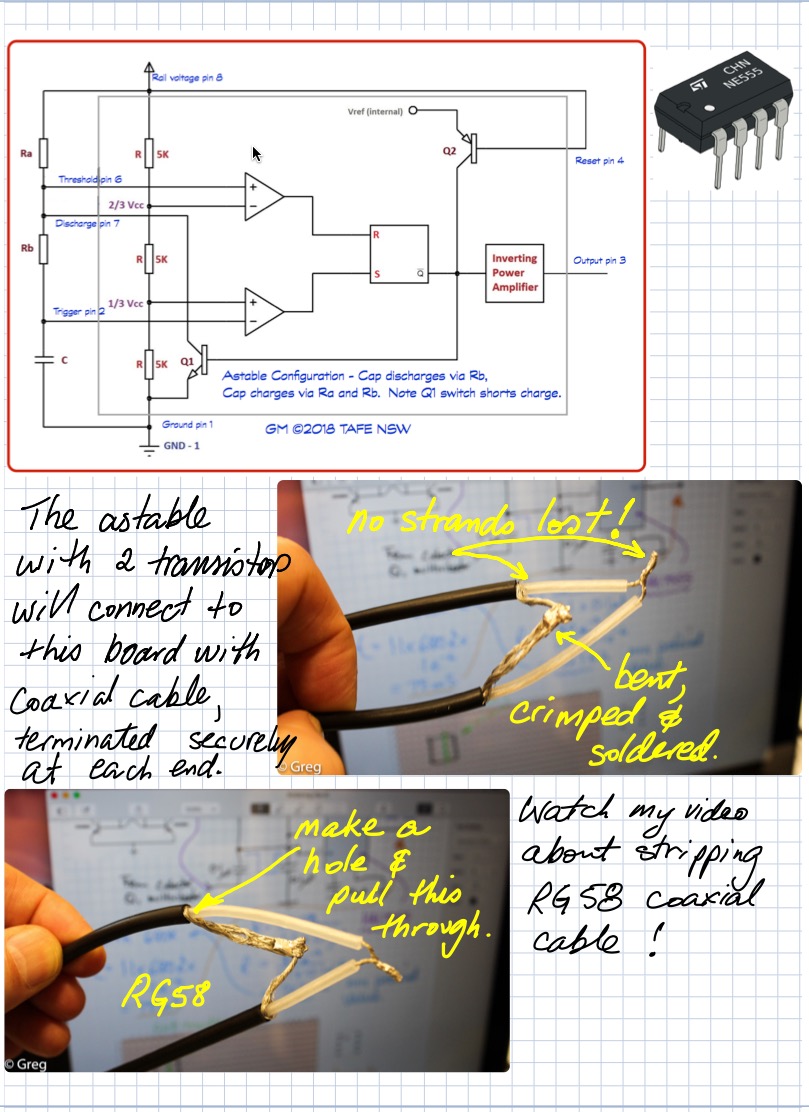 Rail voltage pin 8
Vref (internal)
Q2
Ra
R
5K
Reset pin 4
Threshold pin 6
2/3 Vcc
+
−
Discharge pin 7
R
Rb
R
5K
S
Q̅
Inverting
Power
Amplifier
Output pin 3
1/3 Vcc
+
−
Trigger pin 2
C
R
5K
Q1
Astable Configuration - Cap discharges via Rb,
Cap charges via Ra and Rb. Note Q1 switch shorts charge.
Ground pin 1
GM ©2018 TAFE NSW
GND - 1
ST
CHN
NE555
The astable
with 2 transistop
will connect to
this board with
coaxial cable,
terminated securely
at each end.
no strands lost!
bent,
crimped &
soldered.
© Greg
make a
hole &
pull this
through.
RG58
© Greg
Watch my video
about stripping
RG58 coaxial
cable !